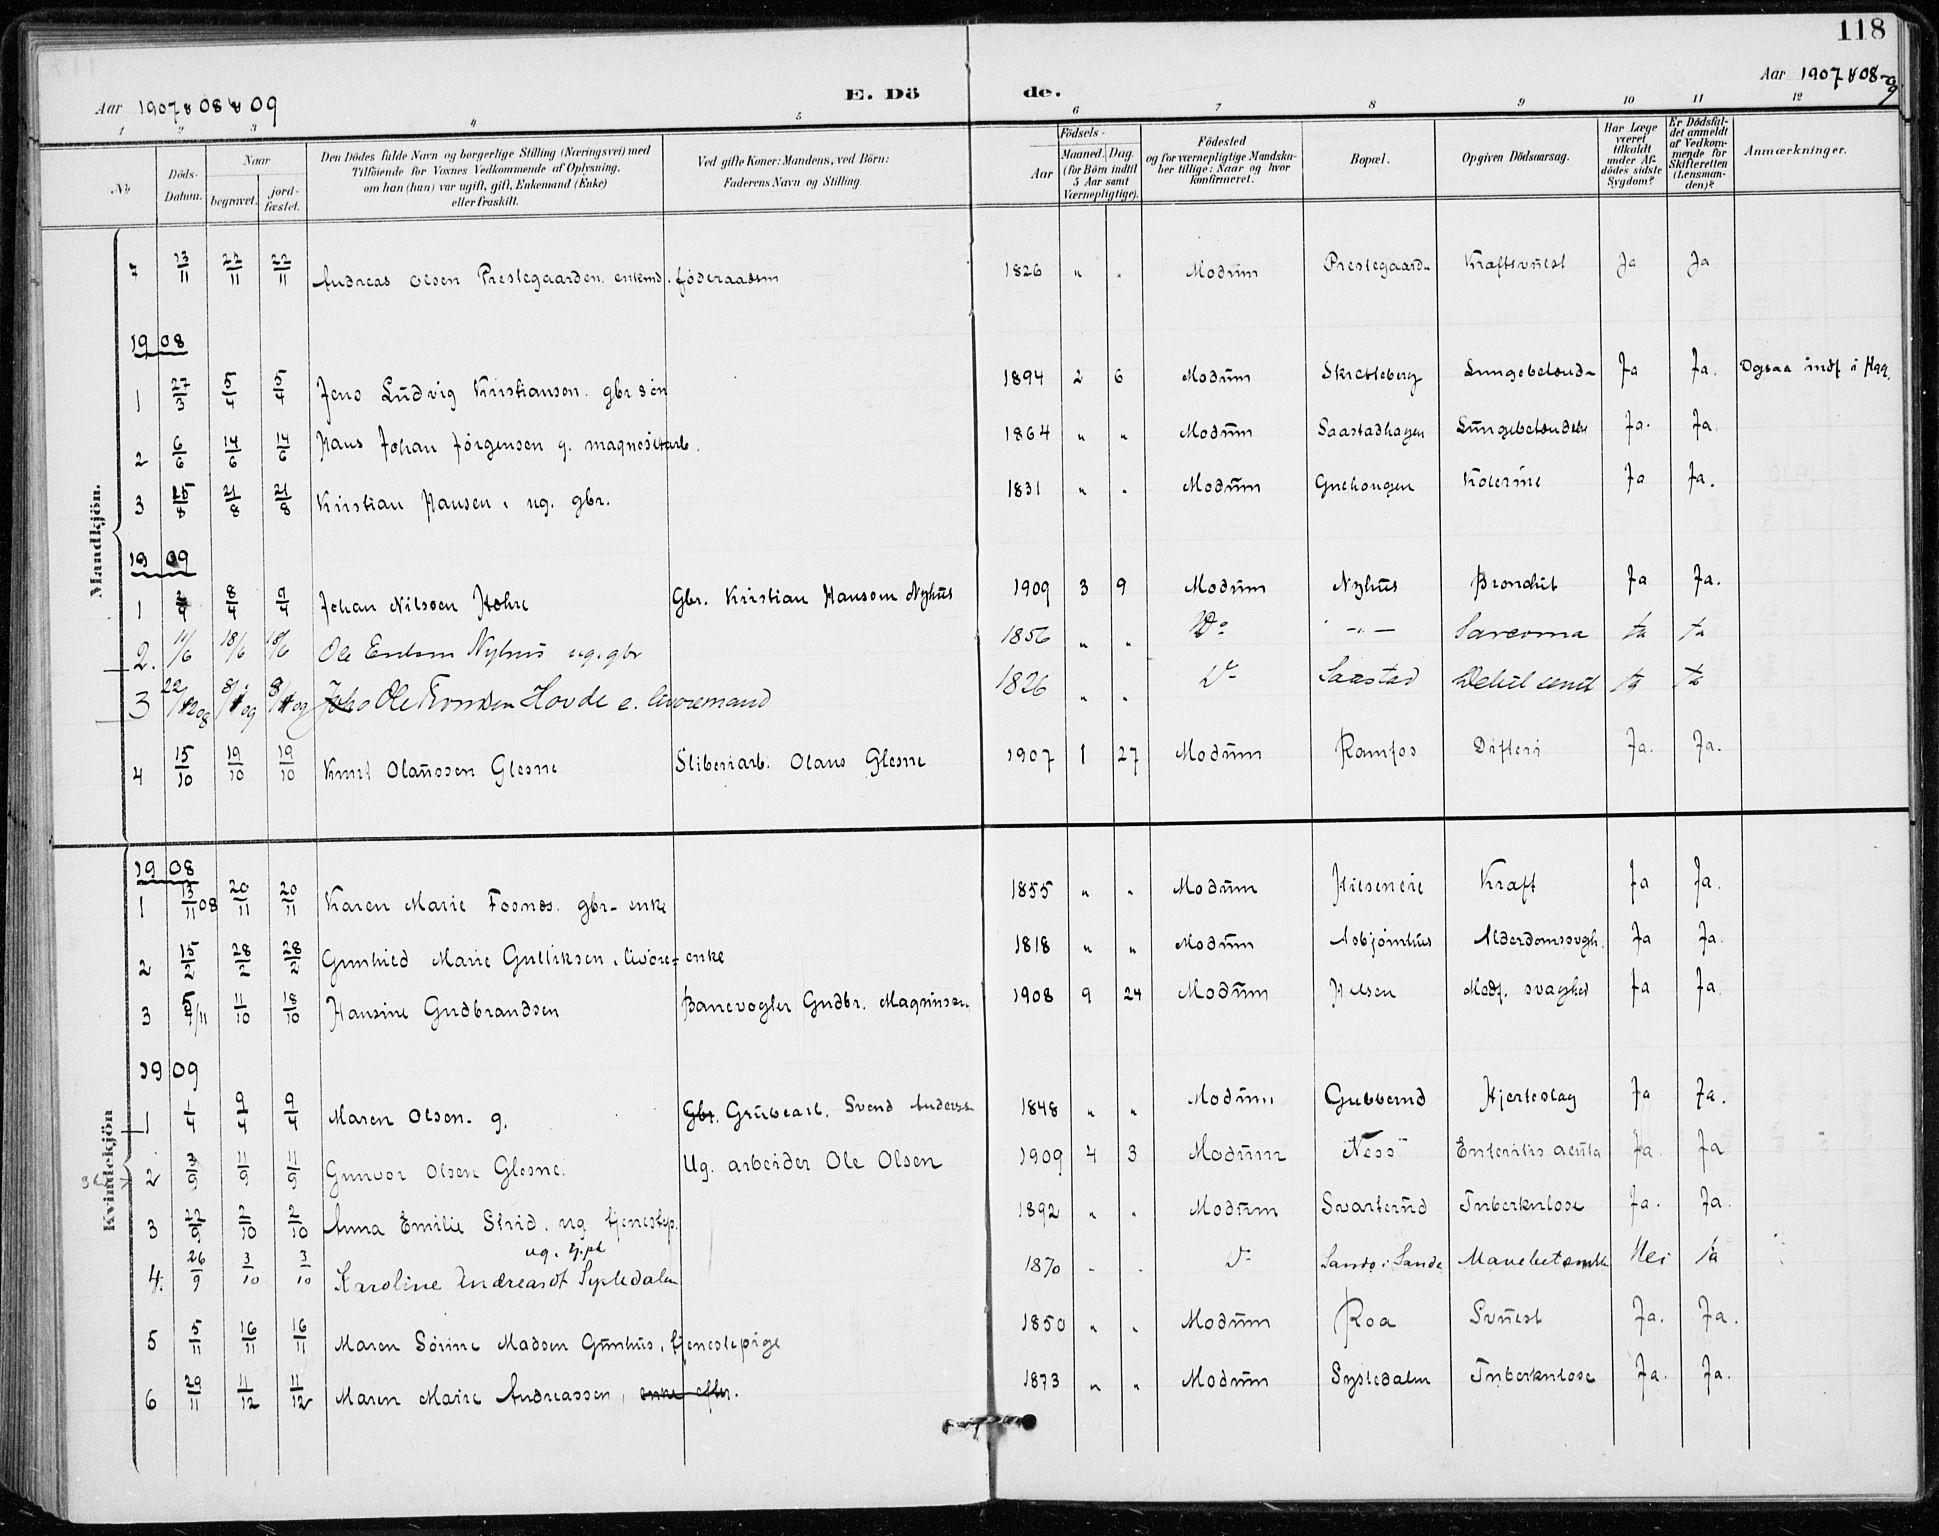 118
Aar 1907 & 08 & 09
E. Dö de.
Aar 1907 & 08 - 09
1 2 3 4 5 6 7 8 9 10 11 12
No
Döds- Datum.
Naar
begravet.
jord- fæstet.
Den Dödes fulde Navn og borgerlige Stilling (Næringsvei) med
Tilföiende for Voxnes Vedkommende af Oplysning,
om han (hun) var ugift, gift, Enkemand (Enke)
eller fraskilt.
Ved gifte Koner: Mandens, ved Börn:
Faderens Navn og Stilling.
Födsels-
Aar
Maaned. Dag.
(for Börn indtil
5 Aar samt
Værnepligtige).
Födested
og for værnepligtige Mandska-
ber tillige: Naar og hvor
konfirmeret.
Bopæl.
Opgiven Dödsaarsag.
Har Læge
været
tilkaldt
under Af-
dödes sidste
Sygdom?
Er Dödsfal-
det anmeldt
af Vedkom-
mende for
Skifteretten
(Lensman-
den)?
Anmærkninger.
Mandkjön.
7 13/11 22/11 22/11 Andreas Olsen Prestegaarden. enkemd. föderaadsm 1826 " " Modum Prestegaarden Kraftsvulst Ja Ja
1908
1 27/3 5/4 5/4 Jens Ludvig Kristiansen. gbr sön 1894 2 6 Modum Skretteberg Lungebetænd- Ja Ja. Ogsaa indf i Hgg.
2 6/6 14/6 14/6 Hans Johan Jörgensen g. magnesitarb. 1864 " " Modum Saastadhagen Lungebetændelse Ja. Ja.
3 15/8 21/8 21/8 Kristian Hansen. ug. gbr. 1831 " " Modum Gnehougen Kolerine Ja Ja.
1909
1 8/4 9/4 Johan Nilssen Hohre Gbr. Kristian Hansen Nyhus 1909 3 9 Modum Nyhus Bronchit Ja Ja.
2. 11/6 18/6 18/6 Ole Nyhus ug. gbr 1856 " " Do -"- Sarcoma Ja Ja
3 22/12 08 8/1 09 8/1 09 Ole Hovde e. livöremand 1826 " " Do Saastad Debil. senil Ja Ja
4 15/10 19/10 19/10 Knut Olaussen Glesne Sliberiarb. Olaus Glesne 1907 1 27 Modum Ramfos Difteri Ja. Ja.
Kvindekjön
1908
1 13/11 08 20/11 20/11 Karen Marie Fosnæs. gbr- enke 1855 " " Modum Hilseneie Kraft Ja Ja.
2 15/2 28/2 28/2 Gunhild Marie Gulliksen. livöre- enke 1818 " " Modum Asbjörnhus Alderdomssvagh. Ja Ja.
3 11/10 18/10 Hansine Gudbrandsen Banevogter Gudbr. Magnussen 1908 9 24 Modum Hilsen Medf. svaghed Ja Ja.
1909
1 1/4 9/4 9/4 Maren Olsen. g. Gbr. Grubearb. Svend Anderss. 1848 " " Modum Gubberud Hjerteslag Ja Ja.
2 3/9 11/9 11/9 Gunvor Olsen Glesne. Ug. arbeider Ole Olsen 1909 4 3 Modum Næss Enteritis acuta Ja. Ja
3 22/9 2/10 2/10 Anna Emilie Strid. ug tjenestep. 1892 " " Modum Svarterud Tuberkulose Ja. Ja.
4. 26/9 3/10 3/10 Karoline Andreasdt Sysledalen ug. tj.pi 1870 - - Do Sands i Sande Nei Ja
5 5/11 16/11 16/11 Maren Sörine Madsen Gunhus, tjenestepige 1850 " " Modum Roa Svulst Ja. Ja.
6 29/11 11/12 11/12 Maren Marie Andreassen, enke efter. 1873 " " Modum Sysledalen Tuberkulose Ja. Ja.